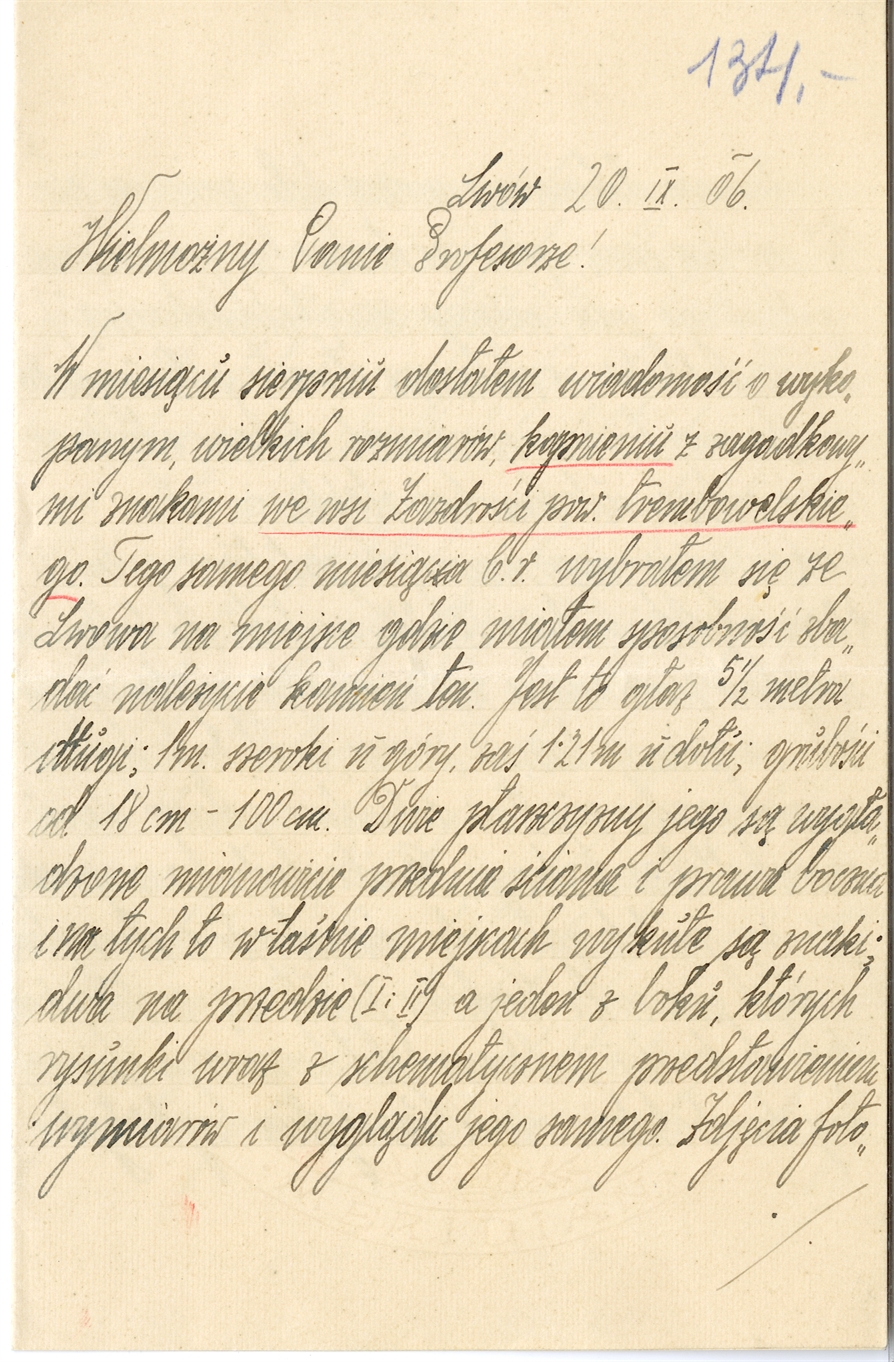 Lwów 20. IX. 06.
Wielmożny Panie Profesorze!
W miesiącu sierpniu dostałem wiadomość o wyko„
panym, wielkich rozmiarów, kamieniu z zagadkowy„
mi znakami we wsi Zazdrości pow. trembowelskie„
go. Tego samego miesiąca b.r. wybrałem się ze
Lwowa na miejsce gdzie miałem sposobność zba„
dać należycie kamień ten. Jest to głaz 5 1/2 metra
długi; 1m. szeroki u góry, zaś 1·21m u dołu; grubości
od 18 cm - 100 cm. Dwie płaszczyzny jego są wygła„
dzone mianowicie przednia ściana i prawa boczna
i na tych to właśnie miejscach wykute są znaki;
dwa na przedzie (I i II) a jeden z boku, których
rysunki wraz z schematycznem przedstawieniem
wymiarów i wyglądu jego samego. Zdjęcia foto„